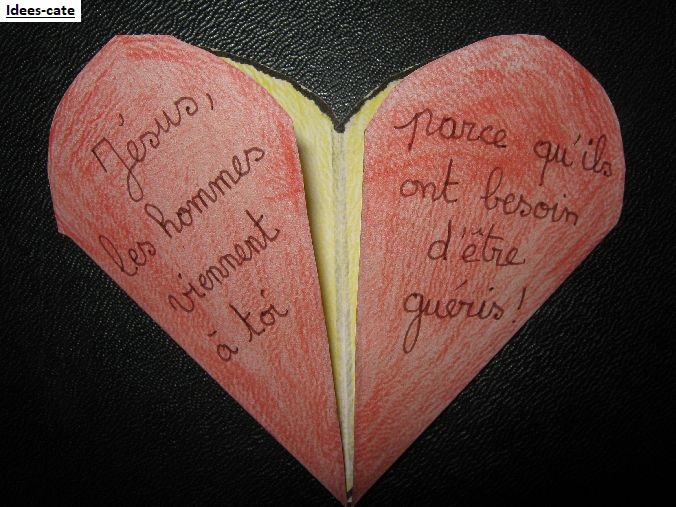 Idees-cate
Jésus,
les hommes
viennent
à toi
parce qu'ils
ont besoin
d'être
guéris!